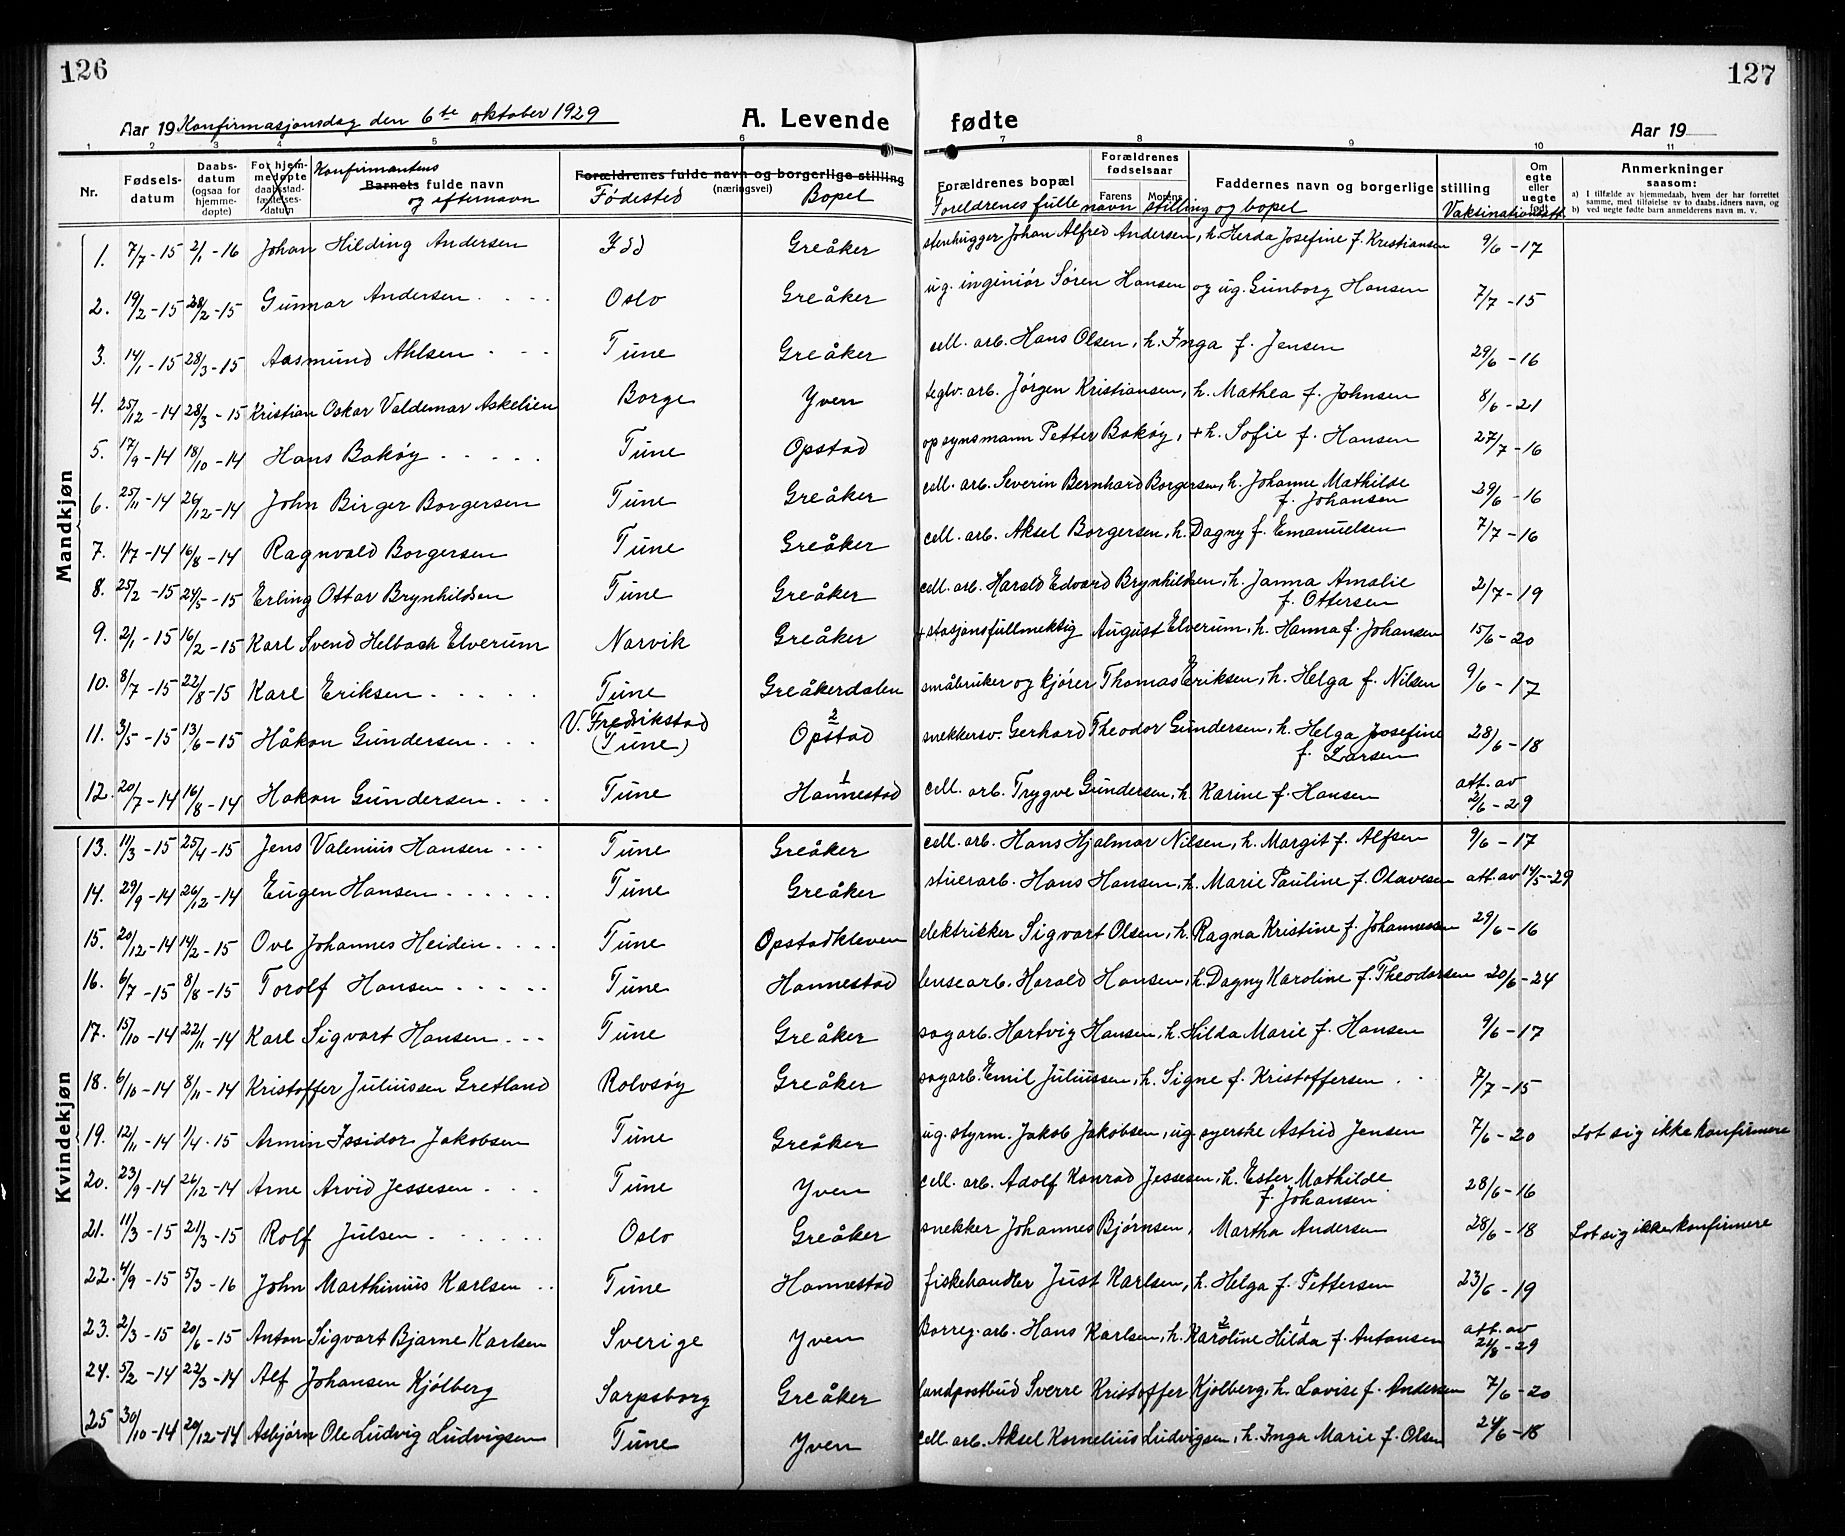 126
127
Aar 19 Konfirmasjonsdag den 6te oktober 1929
A. Levende fødte
Aar 19
1 2 3 4 5 6 7 8 9 10 11
Nr. Fødsels-datum Daabs-datum (ogsaa for hjemme-døpte) For hjem-medøpte daabsstad-fæstelses-datum Konfirmantens Barnets fulde navn og efternavn Forældrenes fulde navn og borgerlige stilling (næringsvei) Fødested Bopel Forældrenes bopæl Forældrenes fødselsaar Farens Morens Faddernes navn og borgerlige stilling Foreldrenes fulle navn stilling og bopel Vaksinationsatt. Om egte eller uegte født Anmerkninger saasom:
a) I tilfælde av hjemmedaab, hvem der har forrettet samme, med tilføielse av to daabsvidners navn, og
b) ved uegte fødte barn anmelderens navn m. v.
Mandkjøn
1. 7/7-15 2/1-16 Johan Hilding Andersen Idd Greåker stenhugger Johan Alfred Andersen, h. Herda Josefine f. Kristiansen 9/6-17
2. 19/2-15 28/2-15 Gunnar Andersen Oslo Greåker ug. ingeniør Søren Hansen og ug. Gunborg Hansen 7/7-15
3. 14/1-15 28/3-15 Aasmund Ahlsen Tune Greåker cell. arb. Hans Olsen, h. Inga f. Jensen 29/6-16
4. 25/12-14 28/3-15 Kristian Oskar Valdemar Askelien Borge Yven teglv. arb. Jørgen Kristiansen, h. Mathea f. Johnsen 8/6-21
5. 17/9-14 18/10-14 Hans Bakøy Tune Opstad opsynsmann Petter Bakøy, + h. Sofie f. Hansen 27/7-16
6. 25/11-14 26/12-14 John Birger Borgersen Tune Greåker cell. arb. Severin Bernhard Borgersen, h. Johanne Mathilde f. Johansen 29/6-16
7. 1/7-14 16/8-14 Ragnvald Borgersen Tune Greåker cell. arb. Aksel Borgersen, h. Dagny f. Emanuelsen 7/7-16
8. 25/2-15 24/5-15 Erling Ottar Brynhildsen Tune Greåker cell. arb. Harald Edvard Brynhildsen, h. Janna Amalie f. Ottersen 2/7-19
9. 2/1-15 16/2-15 Karl Svend Helbach Elverum Narvik Greåker + stasjonsfullmektig August Elverum, h. Hanna f. Johansen 15/6-20
10. 8/7-15 22/8-15 Karl Eriksen Tune Greåkerdalen småbruker og kjører Thomas Eriksen, h. Helga f. Nilsen 9/6-17
11. 3/5-15 13/6-15 Håkon Gundersen V. Fredrikstad (Tune) 2 Opstad snekkersv. Gerhard Theodor Gundersen, h. Helga Josefine f. Larsen 28/6-18
12. 20/7-14 16/8-14 Hakon Gundersen Tune 1 Hannestad cell. arb. Trygve Gundersen, h. Karine f. Hansen att. av 2/6-29
Kvindekjøn
13. 11/3-15 25/4-15 Jens Valenius Hansen Tune Greåker cell. arb. Hans Hjalmar Nilsen, h. Margit f. Alfsen 9/6-17
14. 29/9-14 26/12-14 Eugen Hansen Tune Greåker stuerarb. Hans Hansen, h. Marie Pauline f. Olavesen att. av 14/5-29
15. 20/12-14 14/2-15 Ove Johannes Heidin Tune Opstadkleven elektrikker Sigvart Olsen, h. Ragna Kristine f. Johannessen 29/6-16
16. 6/7-15 8/8-15 Torolf Hansen Tune Hannestad lensearb. Harald Hansen, h. Dagny Karoline f. Theodorsen 20/6-24
17. 15/10-14 22/11-14 Karl Sigvart Hansen Tune Greåker sagarb. Hartvig Hansen, h. Hilda Marie f. Hansen 9/6-17
18. 6/10-14 8/11-14 Kristoffer Juliussen Gretland Rolvsøy Greåker sagarb. Emil Juliussen, h. Signe f. Kristoffersen 7/7-15
19. 12/11-14 1/4-15 Armin Issidor Jakobsen Tune Greåker ug. styrm. Jakob Jakobsen, ug. syerske Astrid Jensen 7/6-20 Lot sig ikke konfirmere
20. 23/9-14 26/12-14 Arne Arvid Jessesen Tune Yven cell. arb. Adolf Konrad Jessesen, h. Ester Mathilde f. Johansen 28/6-16
21. 11/3-15 21/3-15 Rolf Julsen Oslo Greåker snekker Johannes Bjørnsen, Martha Andersen 28/6-18 Lot sig ikke konfirmere
22. 4/9-15 5/3-16 John Marthinius Karlsen Tune Hannestad fiskehandler Just Karlsen, h. Helga f. Pettersen 23/6-19
23. 2/3-15 20/6-15 Anton Sigvart Bjarne Karlsen Sverige Yven Borreg. arb. Hans Karlsen, h. 2 Karoline 1 Hilda f. Antonsen att. av 24/8-29
24. 5/2-14 22/3-14 Alf Johansen Kjølberg Sarpsborg Greåker landpostbud Sverre Kristoffer Kjølberg, h. Lovise f. Andersen 7/6-20
25 30/10-14 20/12-14 Asbjørn Ole Ludvig Ludvigsen Tune Yven cell. arb. Aksel Kornelius Ludvigsen, h. Inga Marie f. Olsen 24/6-18